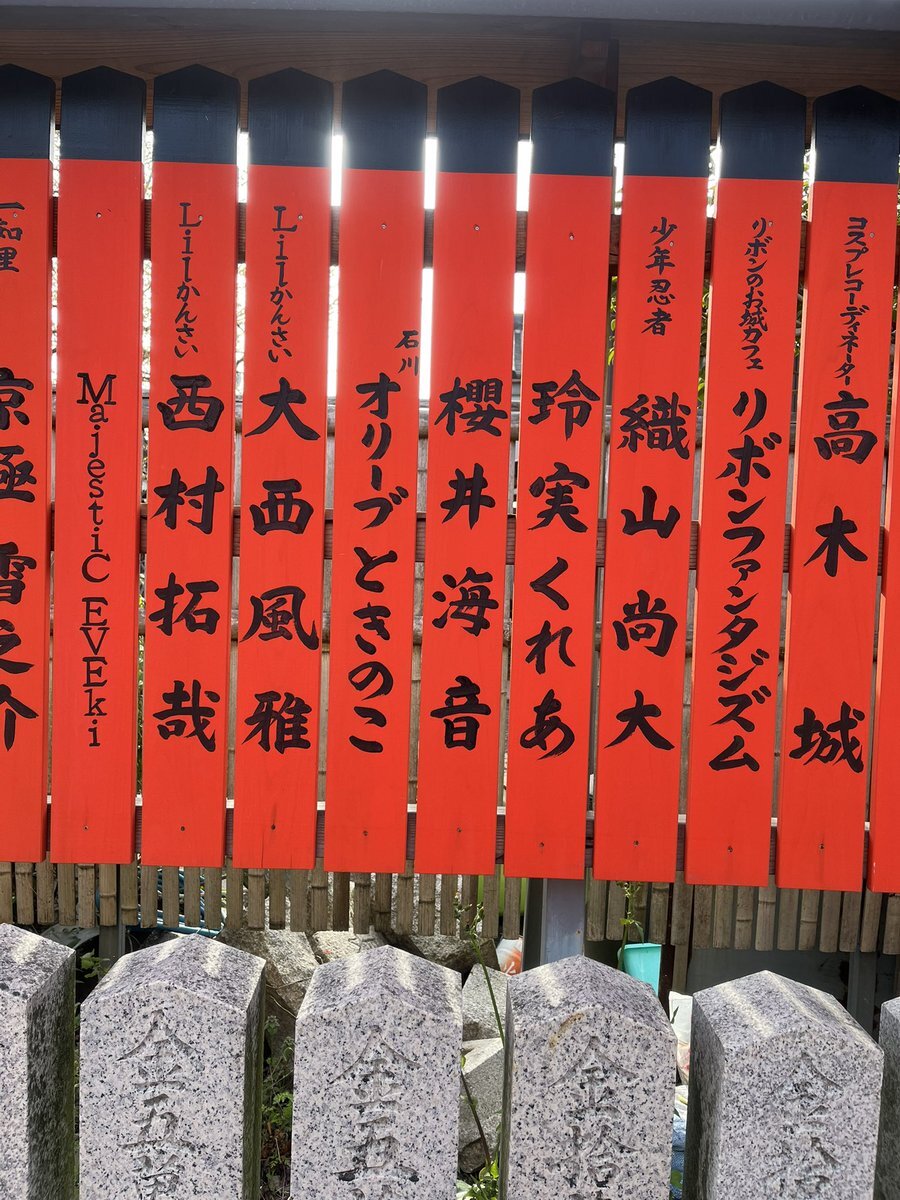 コスプレコーディネーター
高木 城
リボンのお城カフェ
リボンファンタジズム
少年忍者
織山尚大
玲実くれあ
櫻井海音
石川
オリーブときのこ
Lilかんさい
大西風雅
Lilかんさい
西村拓哉
MajestiC EVEki
京極雪之介
金五
金五
金拾
金拾